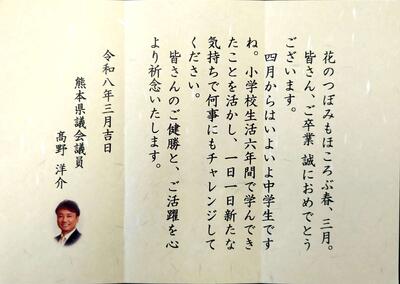 花のつぼみもほころぶ春、三月。
皆さん、ご卒業 誠におめでとう
ございます。
四月からはいよいよ中学生です
ね。小学校生活六年間で学んでき
たことを活かし、一日一日新たな
気持ちで何事にもチャレンジして
ください。
皆さんのご健勝と、ご活躍を心
より祈念いたします。
令和八年三月吉日
熊本県議会議員
髙野 洋介